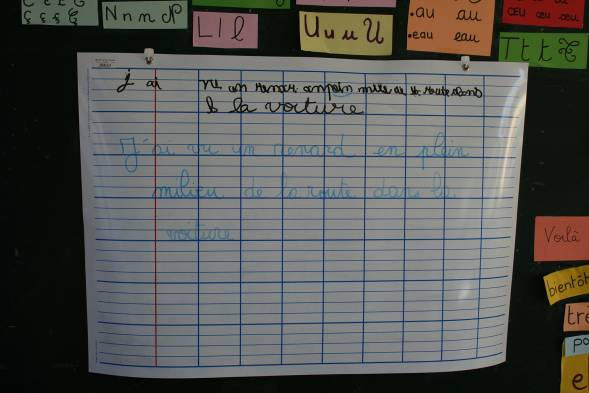 Ç ç Ç
N n n N
L l l
U u u U
.au au
.eau eau
œu œu œu
T t t T
j ai vu un renar anpoin milieu de de route dans
la voiture
J'ai vu un renard en plein
milieu de la route dans la
voiture
Voilà
bientôt
trè
po
e